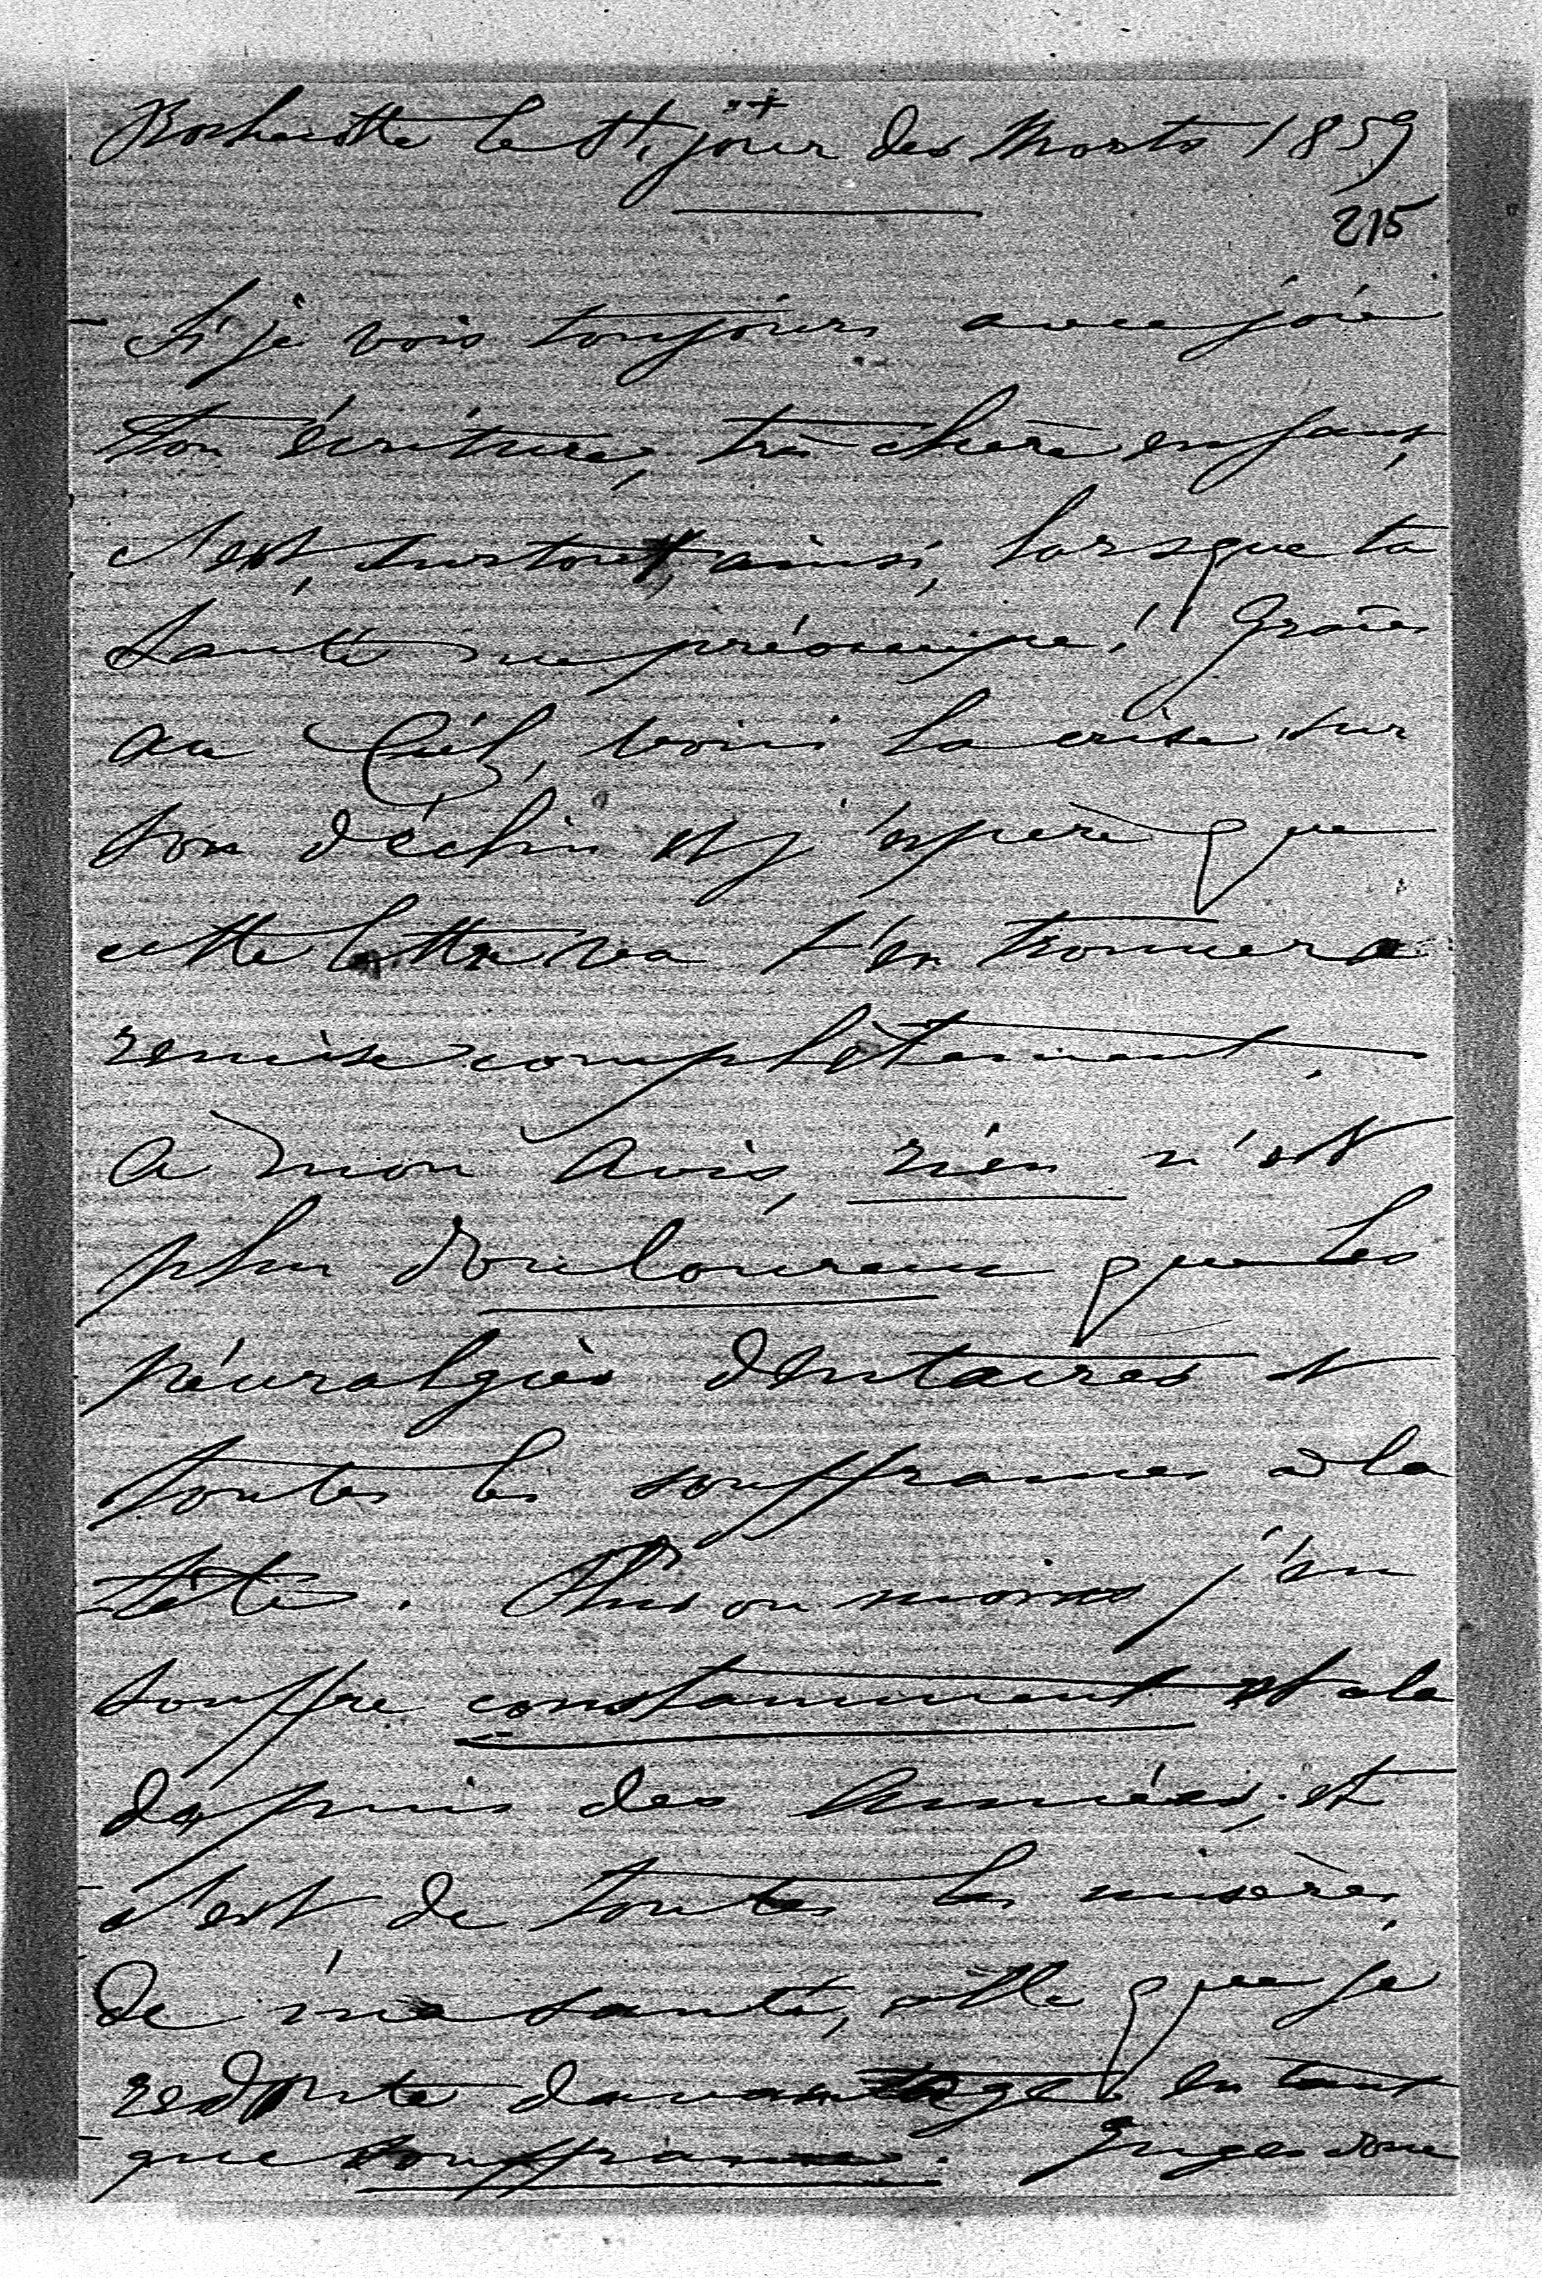 Rochecotte le St. jour des Morts 1859
215
Si je vois toujours avec joie
ton écriture, très chère enfant,
c'est, surtout, ainsi, lorsque ta
santé me préoccupe! Grâces
au Ciel, voici la crise sur
son déclin et j'espère que
cette lettre va t'en trouver
remise complètement.
A mon avis, rien n'est
plus douloureux que les
névralgies dentaires et
toutes les souffrances à la
tête. Plus ou moins j'en
souffre constamment et cela
depuis des années, et
c'est de toutes les misères,
de ma santé, celle que je
redoute davantage en tant
que souffrance. Juges donc